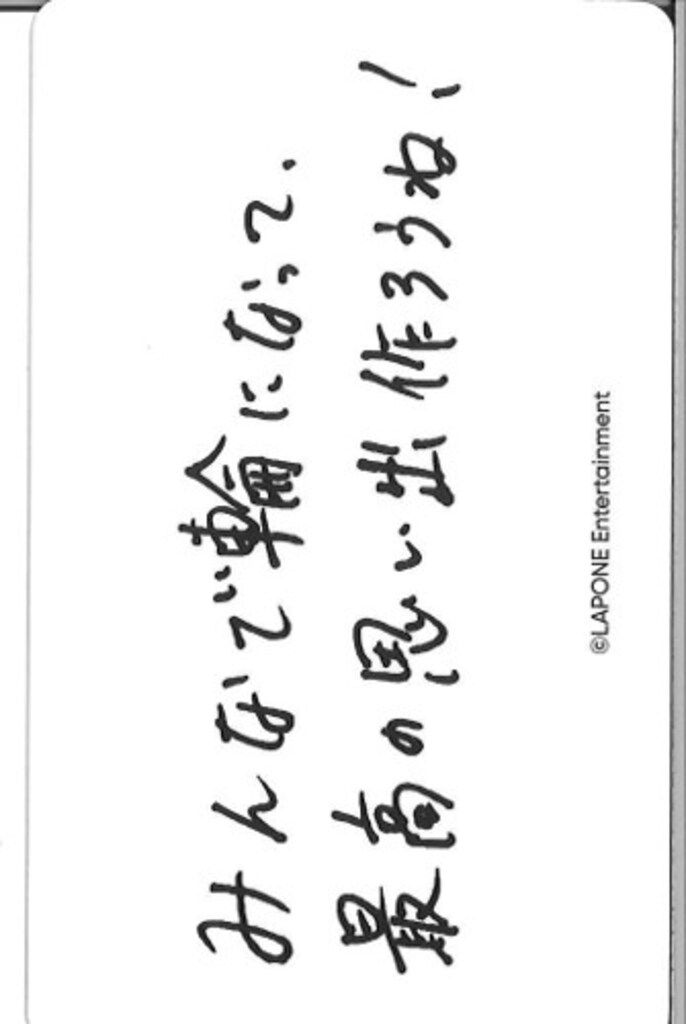 みんなで輪になって、
最高の思い出作ろうね!
©LAPONE Entertainment